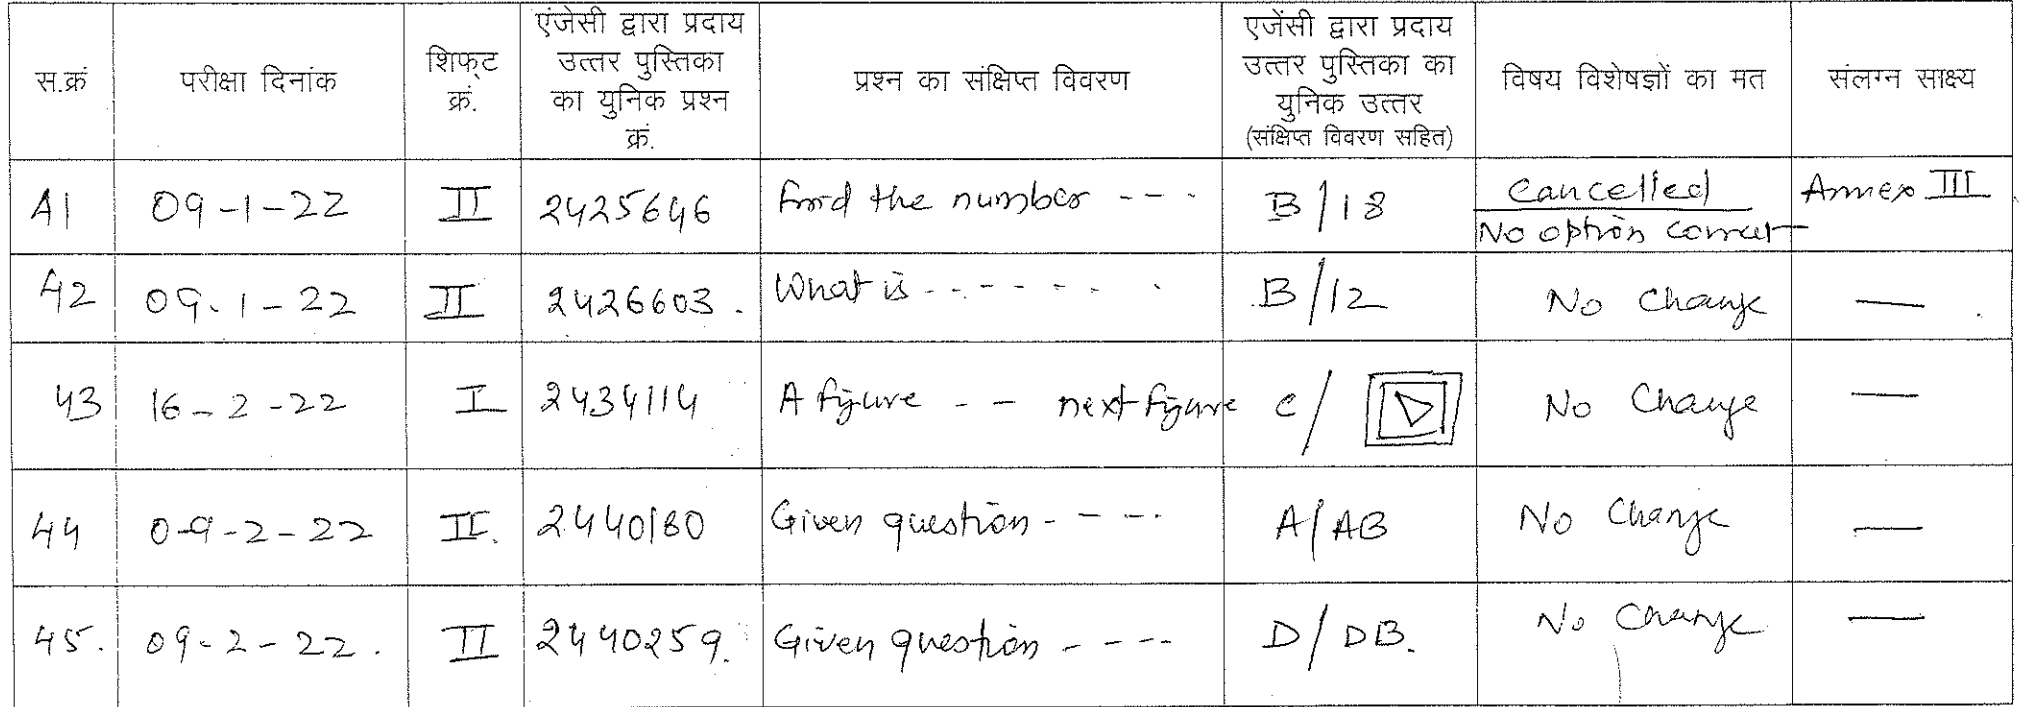 स.क्रं परीक्षा दिनांक शिफ्ट क्रं. एंजेसी द्वारा प्रदाय उत्तर पुस्तिका का युनिक प्रश्न क्रं. प्रश्न का संक्षिप्त विवरण एजेंसी द्वारा प्रदाय उत्तर पुस्तिका का युनिक उत्तर (संक्षिप्त विवरण सहित) विषय विशेषज्ञों का मत संलग्न साक्ष्य
41 09-1-22 II 2425646 Find the number --- B/18 Cancelled No option correct Annex III
42 09-1-22 II 2426603. What is ------- B/12 No Change —
43 16-2-22 I 2434114 A figure -- next figure C/ No Change —
44 09-2-22 II. 2440180 Given question ---- A/AB No Change —
45. 09-2-22. II 2440259. Given question ---- D/DB. No Change —